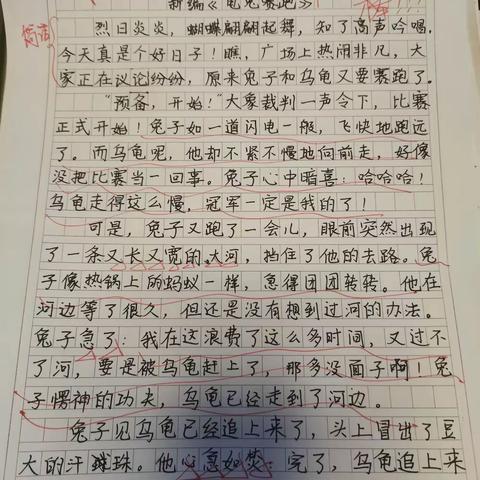 新编《龟兔赛跑》
烈日炎炎，蝴蝶翩翩起舞，知了高声吟唱。
今天真是个好日子！瞧，广场上热闹非凡，大
家正在议论纷纷，原来兔子和乌龟又要赛跑了。
“预备，开始！”大象裁判一声令下，比赛
正式开始！兔子如一道闪电一般，飞快地跑远
了。而乌龟呢，他却不紧不慢地向前走，好像
没把比赛当一回事。兔子心中暗喜：哈哈哈！
乌龟走得这么慢，冠军一定是我的了！
可是，兔子又跑了一会儿，眼前突然出现
了一条又长又宽的大河，挡住了他的去路。兔
子像热锅上的蚂蚁一样，急得团团转转。他在
河边等了很久，但还是没有想到过河的办法。
兔子急了：我在这浪费了这么多时间，又过不
了河，要是被乌龟赶上了，那多没面子啊！兔
子愣神的功夫，乌龟已经走到了河边。
兔子见乌龟已经追上来了，头上冒出了豆
大的汗珠。他心急如焚：完了，乌龟追上来